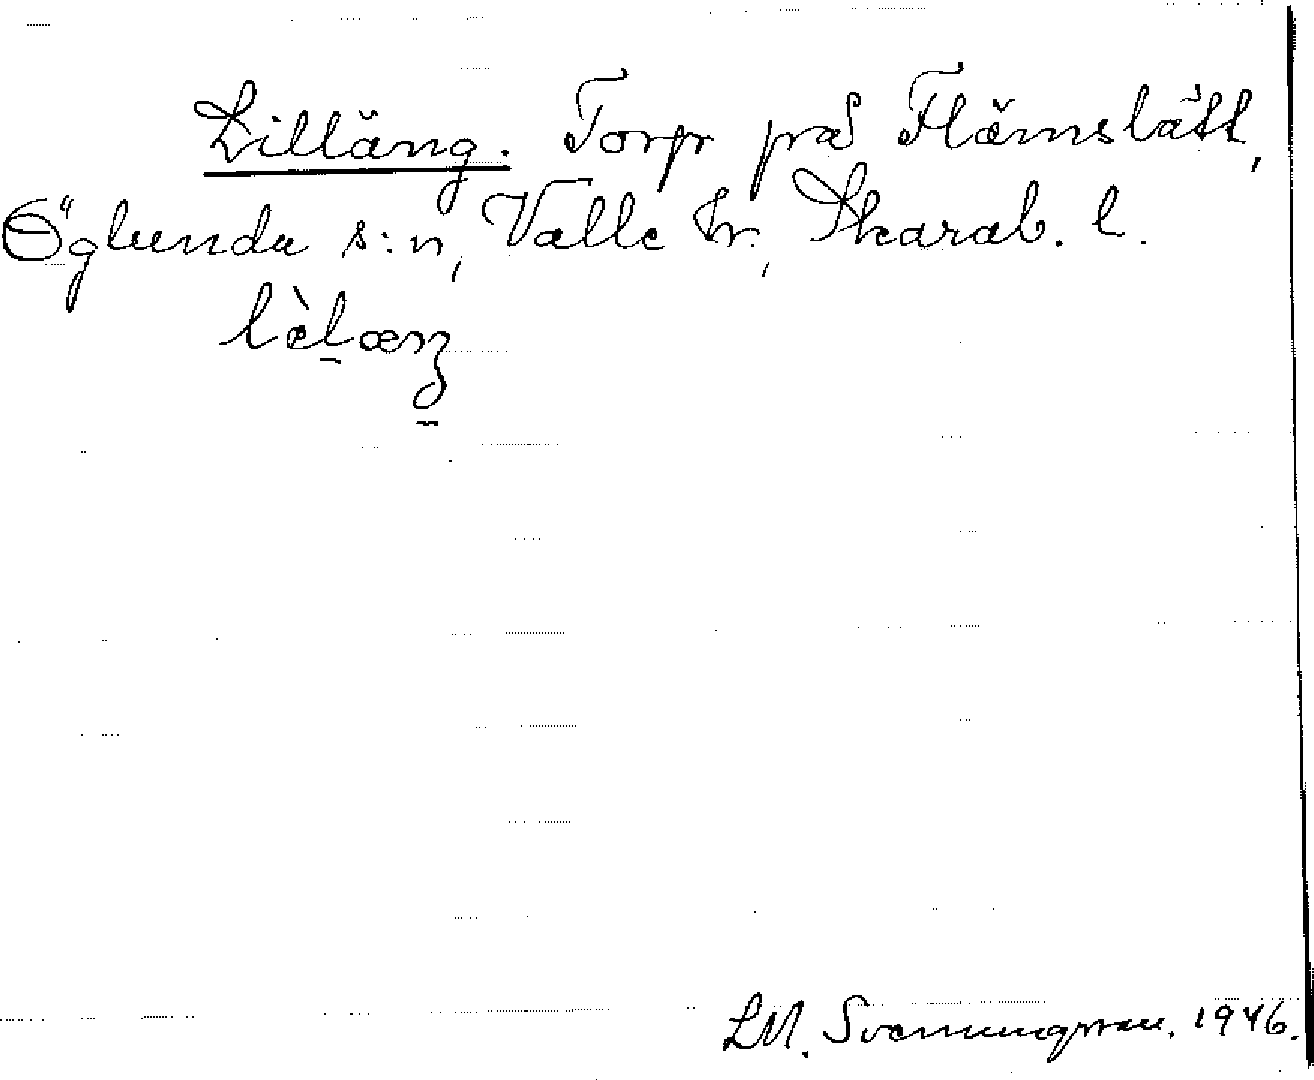 Lilläng. Torp på Flämslätt,
Öglunda s:n, Valle hr., Skarab. l.
lèlæŋ
L.M. Svenungsson, 1946.